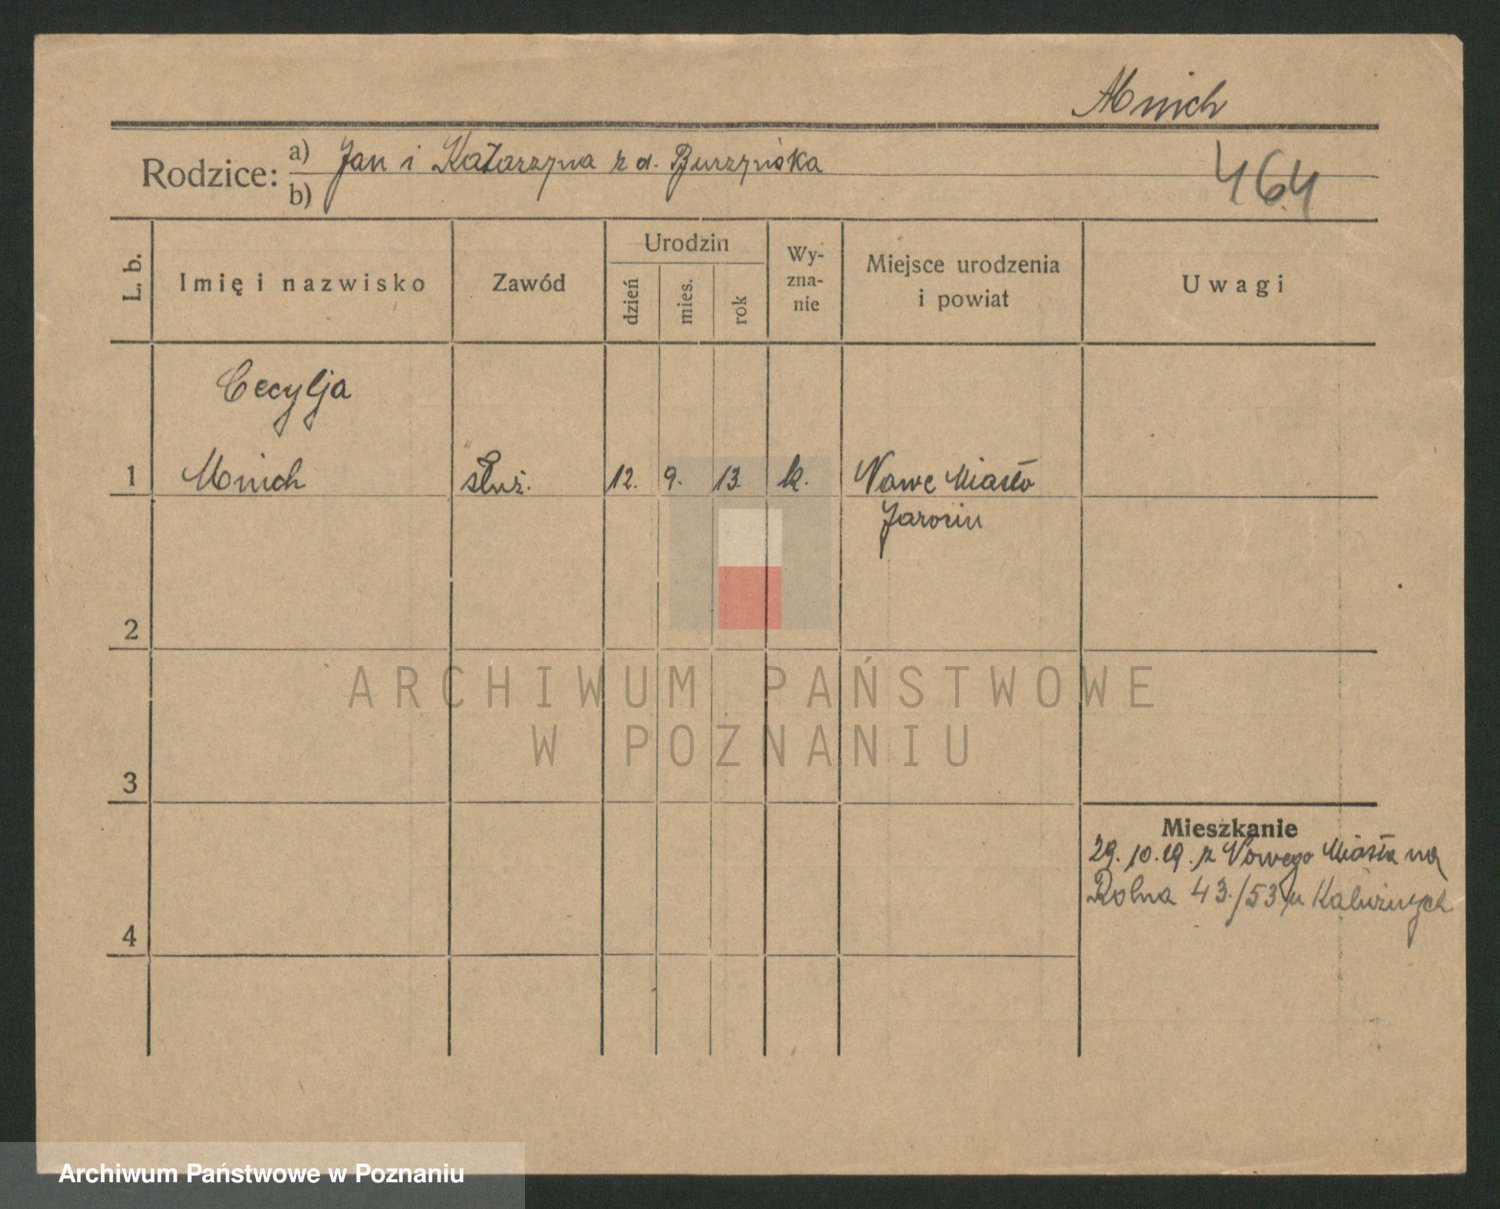 Mnich
464
Rodzice: a) Jan i Katarzyna z d. Burzyńska
b)
L. b.
Imię i nazwisko
Zawód
Urodzin
dzień
mies.
rok
Wy-
zna-
nie
Miejsce urodzenia
i powiat
Uwagi
Cecylja
1 Mnich służ. 12. 9. 13. k. Nowe Miasto
Jarocin
2
3
4
Mieszkanie
29. 10. 29. z Nowego Miasta na
Rolna 43./53 u
ARCHIWUM PAŃSTWOWE
W POZNANIU
Archiwum Państwowe w Poznaniu